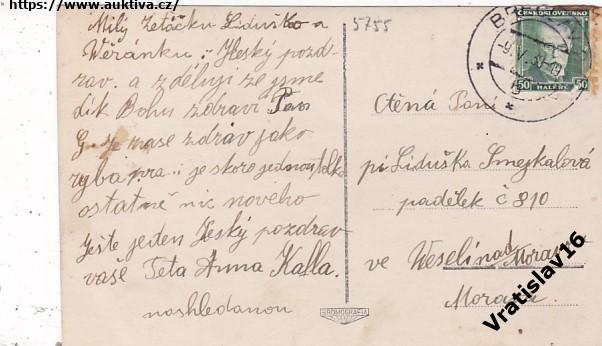 https://www.auktiva.cz/
5755
Milý Zeťáčku Liduško a
Weránku. Heský pozd-
rav. a zděluji ze jsme
dík Bohu zdraví Pan
G. je zase zdrav jako
ryba je skoro jednou
ostatně nic nového
Ješte jeden Heský pozdrav
vaše Teta Anna Kalla.
nashledanou
ČESKOSLOVENSKO
50 HALÉŘŮ 50
Ctěná Paní
pí Liduška Smejkalová
padělek č 810
ve Weselí nad Moravo
Morava
GRAFIA
Vratislav16